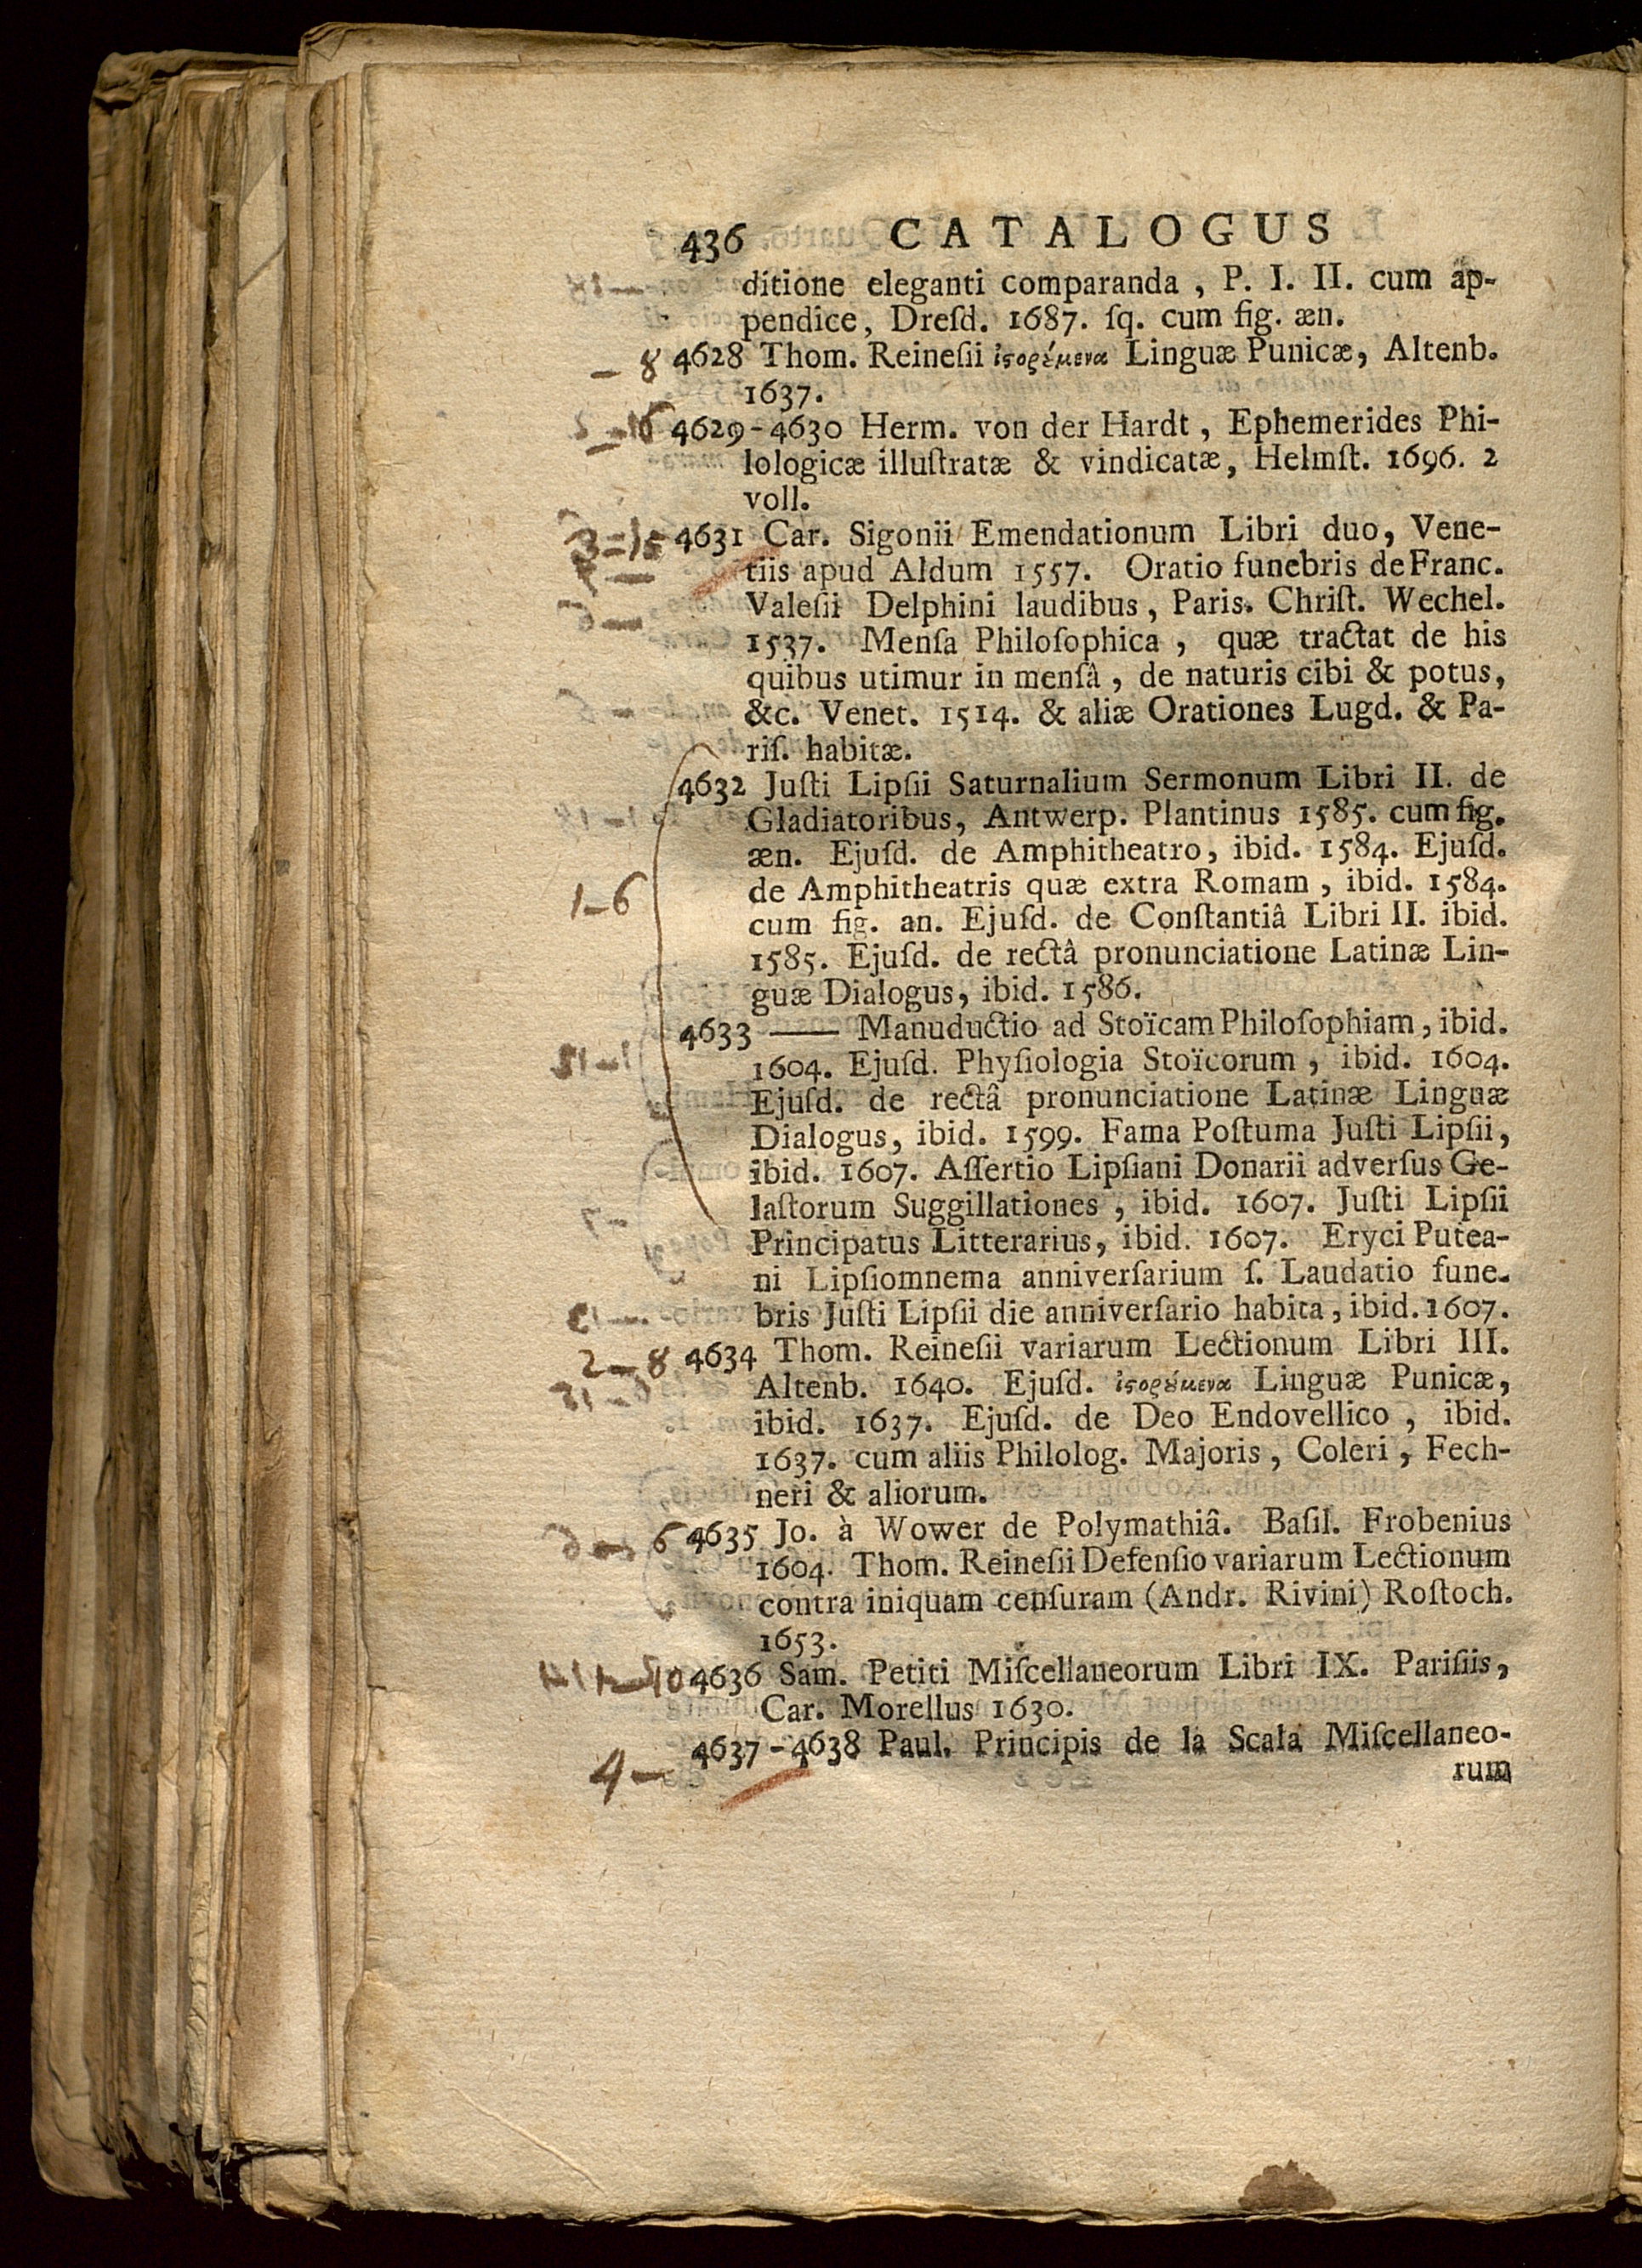 436 CATALOGUS
ditione eleganti comparanda, P. I. II. cum ap-
pendice, Dreſd. 1687. ſq. cum fig. æn.
– 8 4628 Thom. Reineſii ἱϛορȣ́μενα Linguæ Punicæ, Altenb.
1637.
4629-4630 Herm. von der Hardt, Ephemerides Phi-
lologicæ illuſtratæ & vindicatæ, Helmſt. 1696. 2
voll.
3–15 4631 Car. Sigonii Emendationum Libri duo, Vene-
tiis apud Aldum 1557. Oratio funebris de Franc.
Valeſii Delphini laudibus, Paris. Chriſt. Wechel.
1537. Menſa Philoſophica, quæ tractat de his
quibus utimur in menſâ, de naturis cibi & potus,
&c. Venet. 1514. & aliæ Orationes Lugd. & Pa-
riſ. habitæ.
4632 Juſti Lipſii Saturnalium Sermonum Libri II. de
Gladiatoribus, Antwerp. Plantinus 1585. cum fig.
æn. Ejuſd. de Amphitheatro, ibid. 1584. Ejuſd.
1–6 de Amphitheatris quæ extra Romam, ibid. 1584.
cum fig. an. Ejuſd. de Conſtantiâ Libri II. ibid.
1585. Ejuſd. de rectâ pronunciatione Latinæ Lin-
guæ Dialogus, ibid. 1586.
4633 —— Manuductio ad Stoïcam Philoſophiam, ibid.
1604. Ejuſd. Phyſiologia Stoïcorum, ibid. 1604.
Ejuſd. de rectâ pronunciatione Latinæ Linguæ
Dialogus, ibid. 1599. Fama Poſtuma Juſti Lipſii,
ibid. 1607. Aſſertio Lipſiani Donarii adverſus Ge-
laſtorum Suggillationes, ibid. 1607. Juſti Lipſii
Principatus Litterarius, ibid. 1607. Eryci Putea-
ni Lipſiomnema anniverſarium ſ. Laudatio fune-
bris Juſti Lipſii die anniverſario habita, ibid. 1607.
2–8 4634 Thom. Reineſii variarum Lectionum Libri III.
Altenb. 1640. Ejuſd. ἱϛορȣ́μενα Linguæ Punicæ,
ibid. 1637. Ejuſd. de Deo Endovellico, ibid.
1637. cum aliis Philolog. Majoris, Coleri, Fech-
neri & aliorum.
– 6 4635 Jo. à Wower de Polymathiâ. Baſil. Frobenius
1604. Thom. Reineſii Defenſio variarum Lectionum
contra iniquam cenſuram (Andr. Rivini) Roſtoch.
1653.
1–10 4636 Sam. Petiti Miſcellaneorum Libri IX. Pariſiis,
Car. Morellus 1630.
4– 4637-4638 Paul. Principis de la Scala Miſcellaneo-
rum